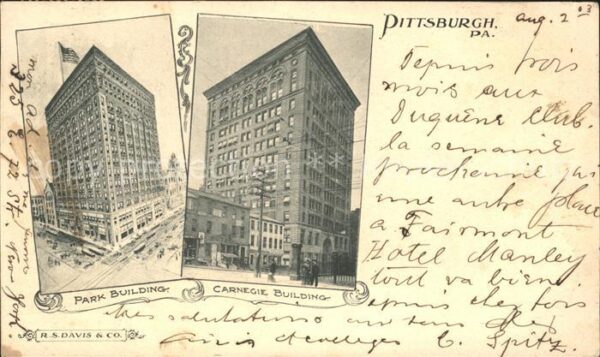 PITTSBURGH,
PA.
aug. 2 03
Depuis trois
mois aux
Duquéne Club.
la semaine
prochenne j'ai
une autre place
a Fairmont
Hotel Manley
tout va bien
depuis chez
mes salutations aux
amis et colleges C. Spitz.
mon ad.
325 E St. New York
PARK BUILDING.
CARNEGIE BUILDING.
R.S. DAVIS & CO.